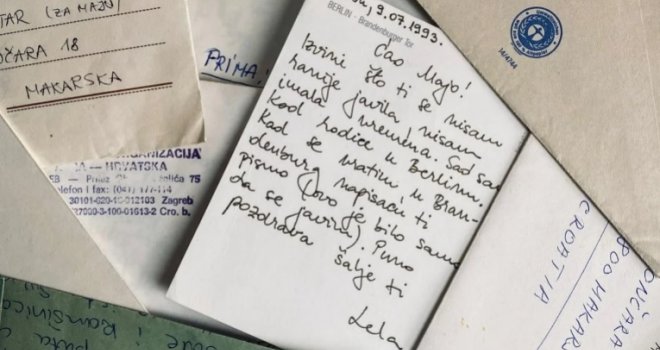 TAR (ZA MAJU)
OČARA 18
MAKARSKA
PRIMA
ORGANIZACIJA
HRVATSKA
75
telefon i fax: (041)
30101-620-16- Zagreb
27000-3-100-01613-2 Cro. b.
BERLIN - Brandenburger Tor
9.07.1993.
Ćao Majo!
Izvini što ti se nisam
ranije javila, nisam
imala vremena. Sad sam
kod rodice u Berlinu.
Kad se vratim u Bran-
denburg napisaću ti
pismo (ovo je bilo samo
da se javim). Puno
pozdrava šalje ti
Lela
LONČARA
MAKARS
CROATIA